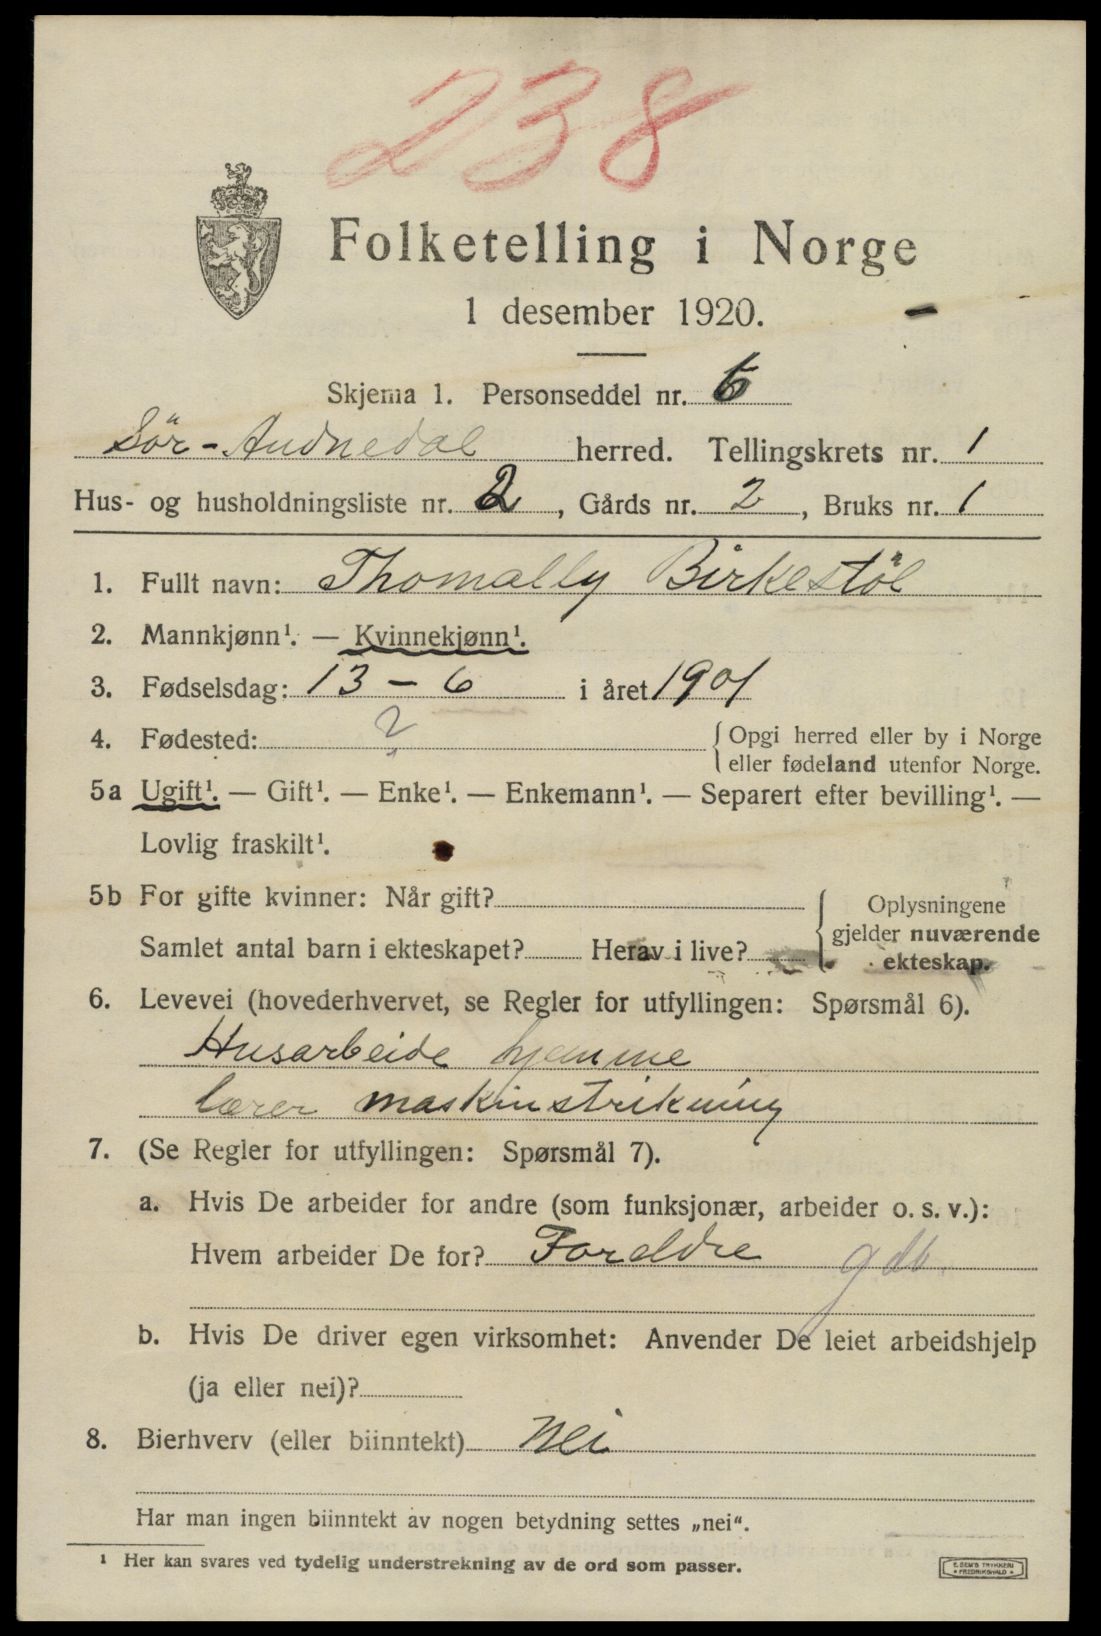 238
Folketelling i Norge
1 desember 1920.
Skjema 1. Personseddel nr. 6
Sör-Audnedal herred. Tellingskrets nr. 1
Hus- og husholdningsliste nr. 2, Gårds nr. 2, Bruks nr. 1
1. Fullt navn: Thomally Birkestöl
2. Mannkjønn¹. — Kvinnekjønn¹.
3. Fødselsdag: 13 – 6 i året 1901
4. Fødested: ? { Opgi herred eller by i Norge
eller fødeland utenfor Norge.
5a Ugift¹. — Gift¹. — Enke¹. — Enkemann¹. — Separert efter bevilling¹. —
Lovlig fraskilt¹.
5b For gifte kvinner: Når gift?
Samlet antal barn i ekteskapet? Herav i live?
Oplysningene
gjelder nuværende
ekteskap.
6. Levevei (hovederhvervet, se Regler for utfyllingen: Spørsmål 6).
Husarbeide hjemme
lærer maskinstrikning
7. (Se Regler for utfyllingen: Spørsmål 7).
a. Hvis De arbeider for andre (som funksjonær, arbeider o. s. v.):
Hvem arbeider De for? Foreldre gdb.
b. Hvis De driver egen virksomhet: Anvender De leiet arbeidshjelp
(ja eller nei)?
8. Bierhverv (eller biinntekt) Nei
Har man ingen biinntekt av nogen betydning settes „nei“.
¹ Her kan svares ved tydelig understrekning av de ord som passer.
E. SEM'S TRYKKERI
FREDRIKSHALD